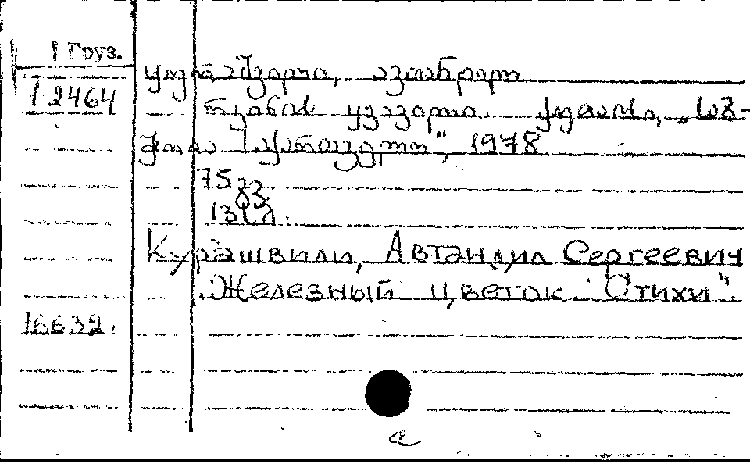 1 Груз.
12464
ყურაშვილი, ავთანდილ
რკინის ყვავილი. „საბ-
ჭოთა საქართველო“, 1978
75 გვ
Курашвили, Автандил Сергеевич
Железный цветок "Стихи".
16632.